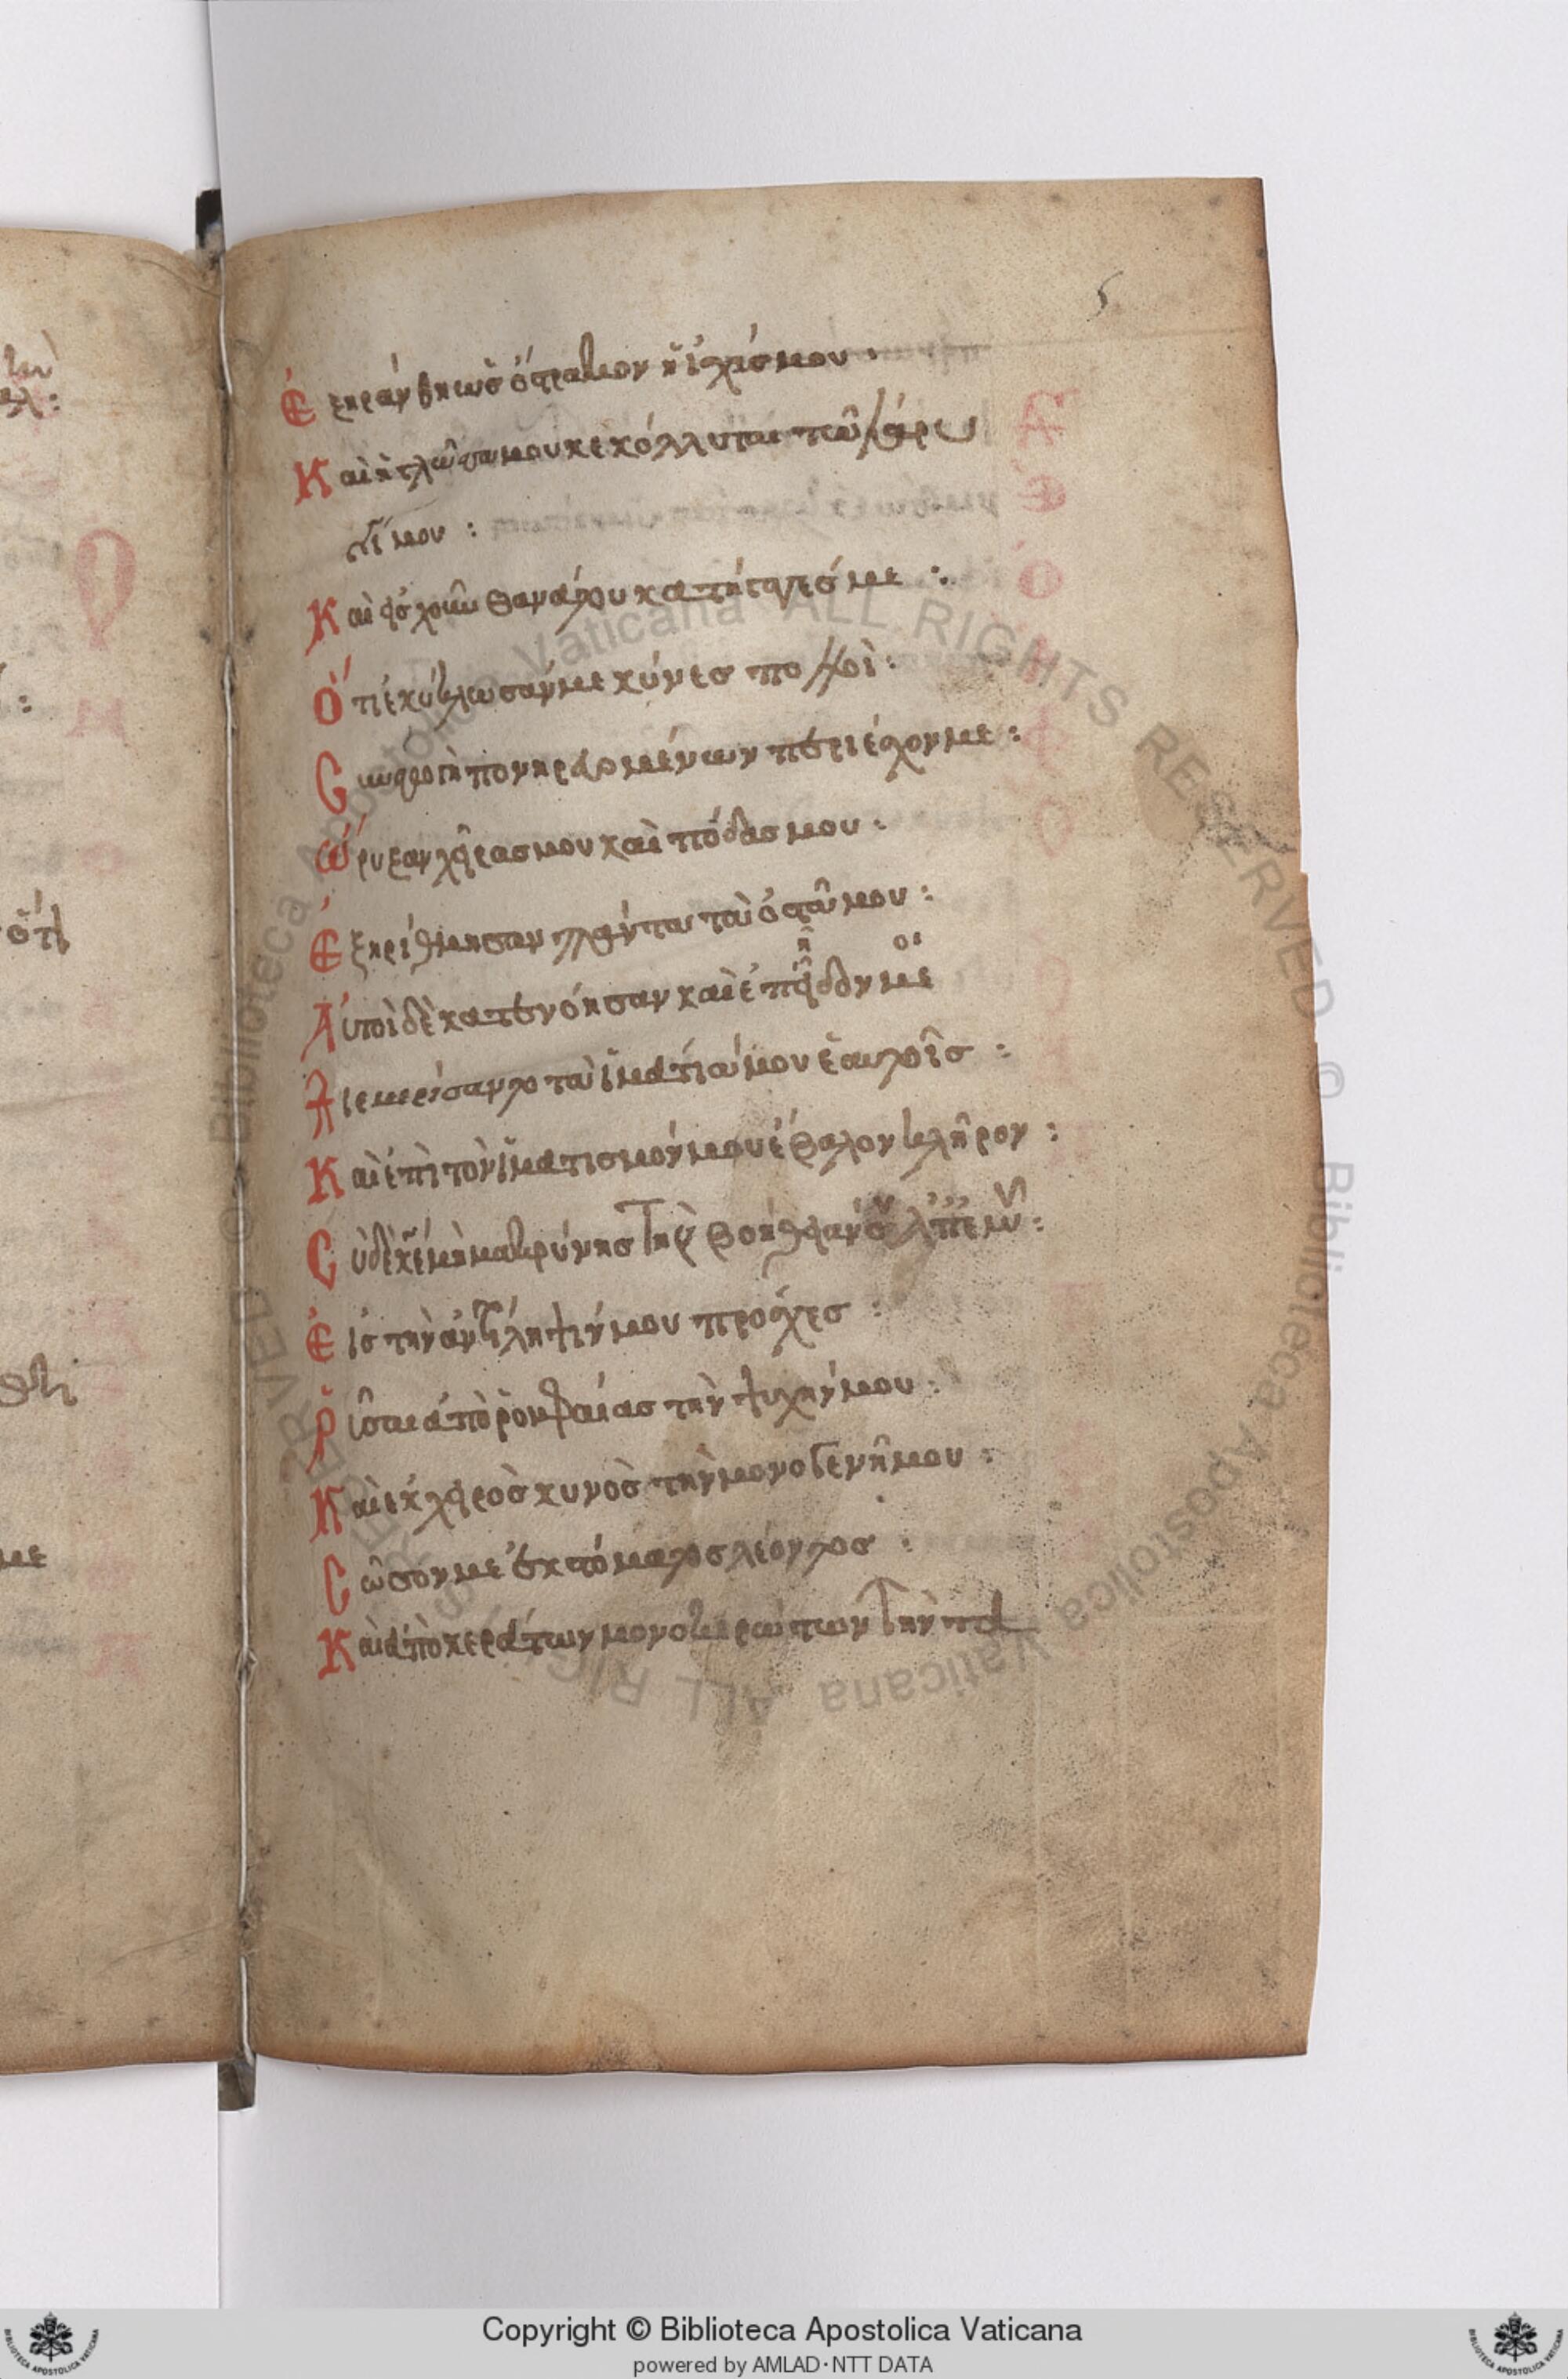 5
Ἐξηράνθη ὡς ὄστρακον ἡ ἰσχύς μου·
Καὶ ἡ γλῶσσα μου κεκόλλυται τῶ λάρυ
γγί μου :
Καὶ εἰς χοῦν θανάτου κατήγαγές με :
Ὅτι ἐκύκλωσάν με κύνες πολλοὶ :
πονηρευομένων περιέσχον με :
Ὤρυξαν χεῖρας μου καὶ πόδας μου :
Ἐξηρίθμησαν πάντα τὰ ὀστᾶ μου :
Αὐτοὶ δὲ κατενόησαν καὶ ἐπεῖδόν με
Διεμερίσαντο τὰ ἱμάτιά μου ἑαυτοῖς :
Καὶ ἐπὶ τὸν ἱματισμόν μου ἔβαλον κλῆρον :
Σὺ δὲ κε μὴ μακρύνης τὴν βοήθειάν σου ἀπ' ἐμοῦ :
Εἰς τὴν ἀντίληψίν μου πρόσχες :
Ῥῦσαι ἀπὸ ῥομφαίας τὴν ψυχήν μου :
Καὶ ἐκ χειρὸς κυνὸς τὴν μονογενῆ μου :
Σῶσόν με ἐκ στόματος λέοντος :
Καὶ ἀπὸ κεράτων μονοκερώτων τὴν τα
Copyright © Biblioteca Apostolica Vaticana
powered by AMLAD·NTT DATA